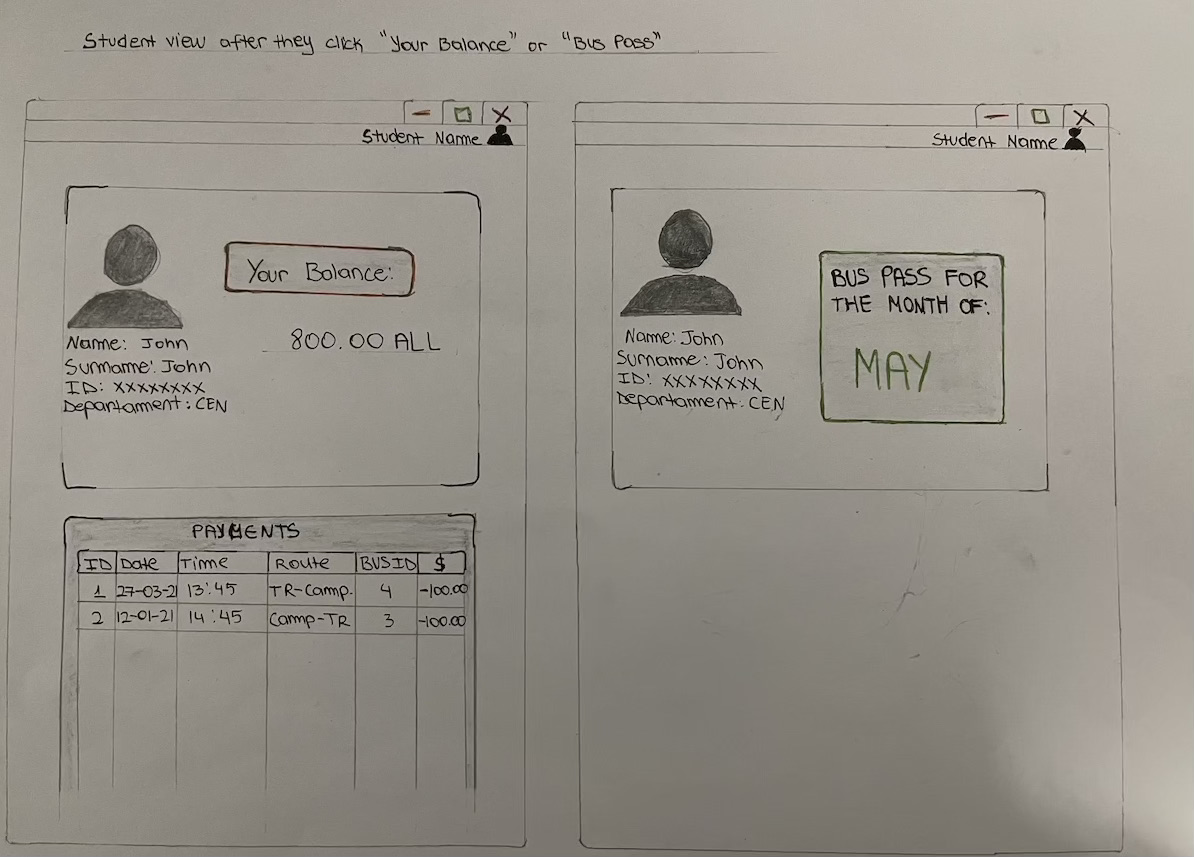 Student view after they click "Your Balance" or "Bus Pass"
Student Name
Your Balance:
800.00 ALL
Name: John
Surname: John
ID: XXXXXXXX
Departament: CEN
PAYMENTS
ID Date Time Route BUSID $
1 27-03-21 13:45 TR-Camp. 4 -100.00
2 12-01-21 14:45 Camp-TR 3 -100.00
Student Name
BUS PASS FOR
THE MONTH OF:
MAY
Name: John
Surname: John
ID: XXXXXXXX
Departament: CEN